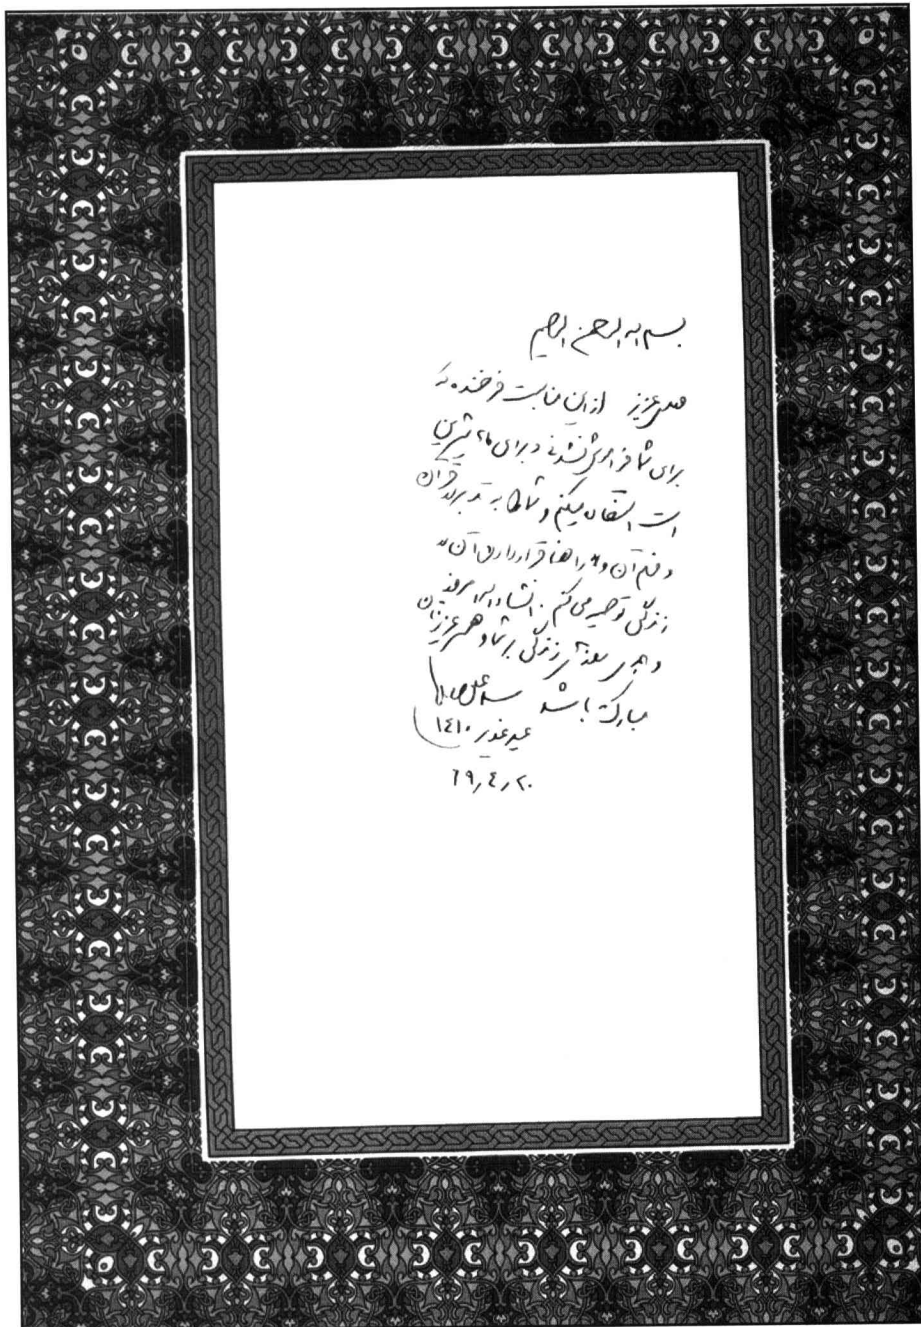 بسم الله الرحمن الرحیم
عزیز از این مناسبت فرخنده که
برای شما فراموش نشدنی و برای ما شیرین
است استفاده میکنم و شما را به تدبر در قرآن
و فهم آن و راهنما قرار دادن آن در
زندگی توصیه می‌کنم. انشاءالله امروز
و همه‌ی روزهای زندگی بر شما و همسر عزیزتان
مبارک باشد سیدعلی
عید غدیر ۱٤۱۰
٦۹٫٤٫۲۰